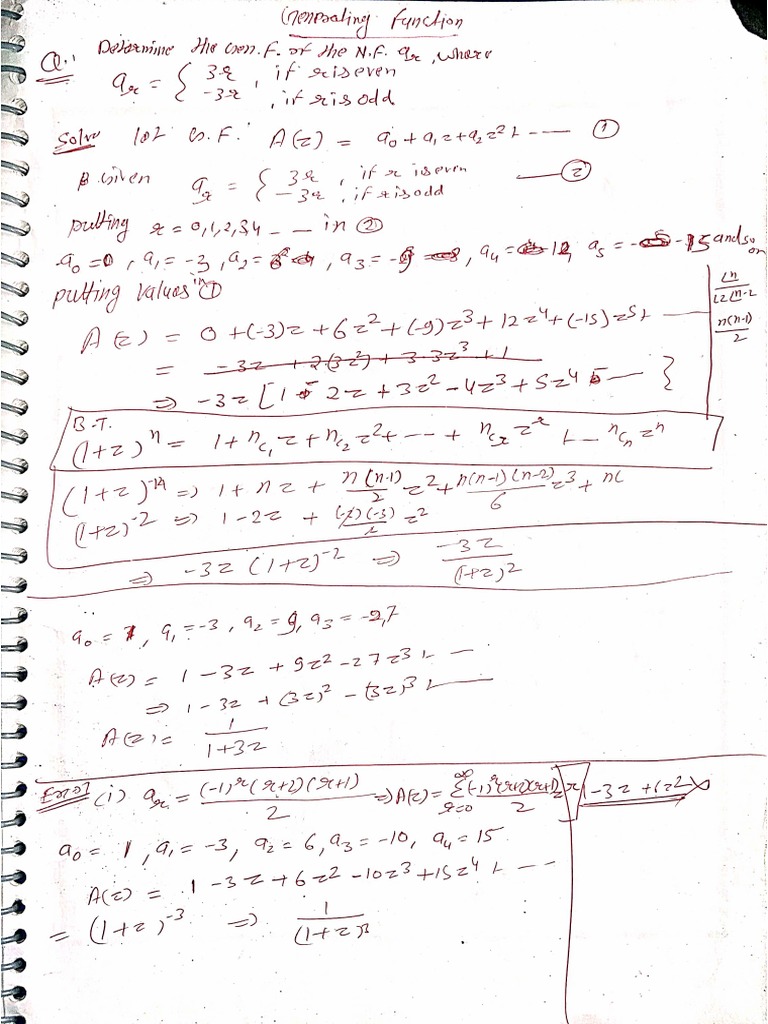 Generating Function
Q.1 Determine the Gen.F. of the N.F. ar, where
ar = { 3r, if r is even
-3r, if r is odd
Solve let G.F. A(z) = a0 + a1z + a2z² + --- ①
Given ar = { 3r, if r is even
-3r, if r is odd —②
putting r = 0,1,2,3,4 -- in ②
a0 = 0, a1 = -3, a2 = 6, a3 = -9, a4 = 12, a5 = -15 and so on
putting values in ①
A(z) = 0 + (-3)z + 6z² + (-9)z³ + 12z⁴ + (-15)z⁵ + ---
= -3z + 2(3z²) + 3·3z³ + 1
⇒ -3z [1 - 2z + 3z² - 4z³ + 5z⁴ --- }
⌊n
⌊2⌊n-2
n(n-1)
2
B.T.
(1+z)ⁿ = 1 + nc1 z + nc2 z² + --- + ncr zʳ + -- ncn zⁿ
⇒ 1 + nz + n(n-1)/2 z² + n(n-1)(n-2)/6 z³ +
(1+z)⁻² ⇒ 1 - 2z + (-2)(-3)/2 z²
⇒ -3z (1+z)⁻² ⇒ -3z/(1+z)²
a0 = 1, a1 = -3, a2 = 9, a3 = -27
A(z) = 1 - 3z + 9z² - 27z³ + --
⇒ 1 - 3z + (3z)² - (3z)³ + ---
A(z) = 1/(1+3z)
(i) ar = (-1)ʳ(r+2)(r+1)/2 ⇒ A(z) = ∞Σr=0 (-1)ʳ(r+2)(r+1)/2 zʳ
1 - 3z + 6z²
a0 = 1, a1 = -3, a2 = 6, a3 = -10, a4 = 15
A(z) = 1 - 3z + 6z² - 10z³ + 15z⁴ + ---
= (1+z)⁻³ ⇒ 1/(1+z)³